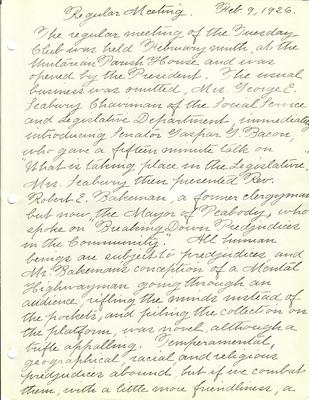 Regular Meeting. Feb. 9, 1926.
The regular meeting of the Tuesday
Club was held February ninth, at the
Unitarian Parish House and was
opened by the President. The usual
business was omitted, Mrs. George E.
Seabury Chairman of the Social Service
and Legislative Department, immediately
introducing Senator Gaspar G. Bacon,
who gave a fifteen minute talk on
"What is taking place in the Legislature."
Mrs. Seabury then presented Rev.
Robert E. Bakeman, a former clergyman
but now the Mayor of Peabody, who
spoke on "Breaking Down Predjudices
in the Community." All human
beings are subject to predjudices, and
Mr. Bakeman's conception of a Mental
Highwayman going through an
audience, rifling the minds instead of
the pockets, and piling the collection on
the platform, was novel although a
trifle appalling. Temperamental,
geographical, racial and religious
predjudices abound, but if we combat
them, with a little more friendliness, a